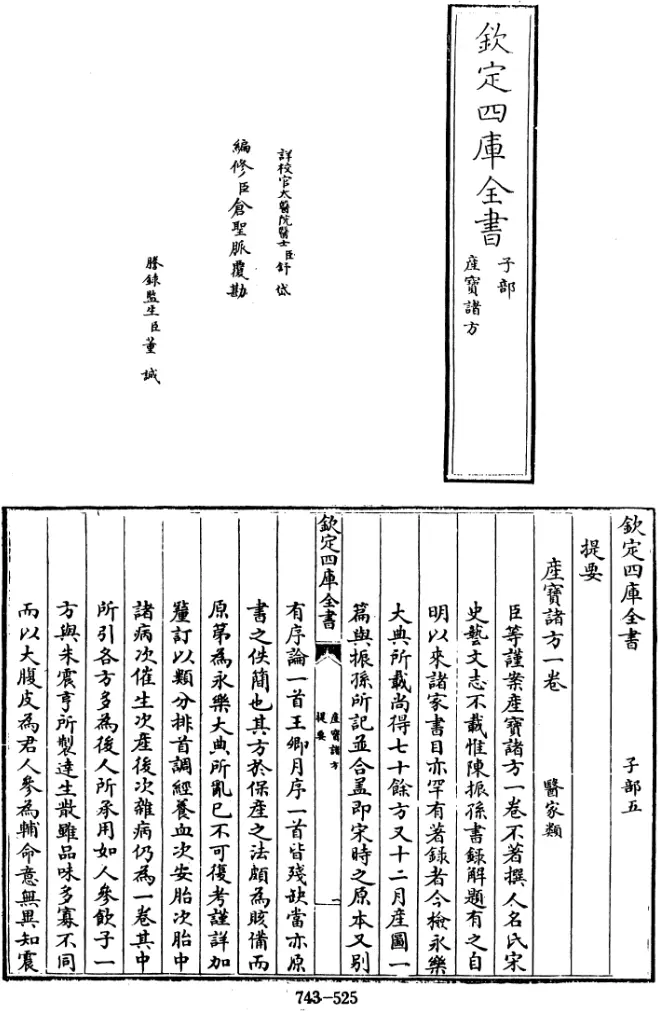 欽定四庫全書
子部
產寶諸方
詳校官太醫院醫士臣舒岱
編修臣倉聖脈覆勘
謄錄監生臣董誠
欽定四庫全書
子部五
提要
產寶諸方一卷
醫家類
臣等謹案產寶諸方一卷不著撰人名氏宋
史藝文志不載惟陳振孫書錄解題有之自
明以來諸家書目亦罕有著錄者今檢永樂
大典所載尚得七十餘方又十二月產圖一
篇與振孫所記並合蓋即宋時之原本又別
欽定四庫全書
產寶諸方
提要
一
有序論一首王卿月序一首皆殘缺當亦原
書之佚簡也其方於保產之法頗為賅備而
原第為永樂大典所亂已不可復考謹詳加
釐訂以類分排首調經養血次安胎次胎中
諸病次催生次產後次雜病仍為一卷其中
所引各方多為後人所承用如人參飲子一
方與朱震亨所製達生散雖品味多寡不同
而以大腹皮為君人參為輔命意無異知震
743-525